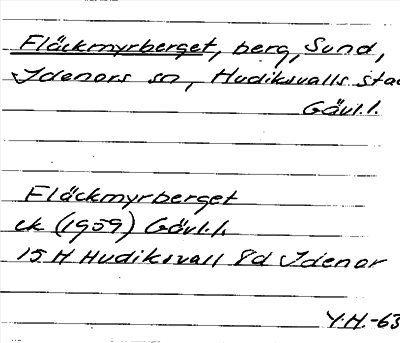 Fläckmyrberget, berg, Sund,
Idenors sn, Hudiksvalls stad
Gävl.l.
Fläckmyrberget
ek (1959) Gävl.l.
15 H Hudiksvall 8d Idenor
Y.H.-63